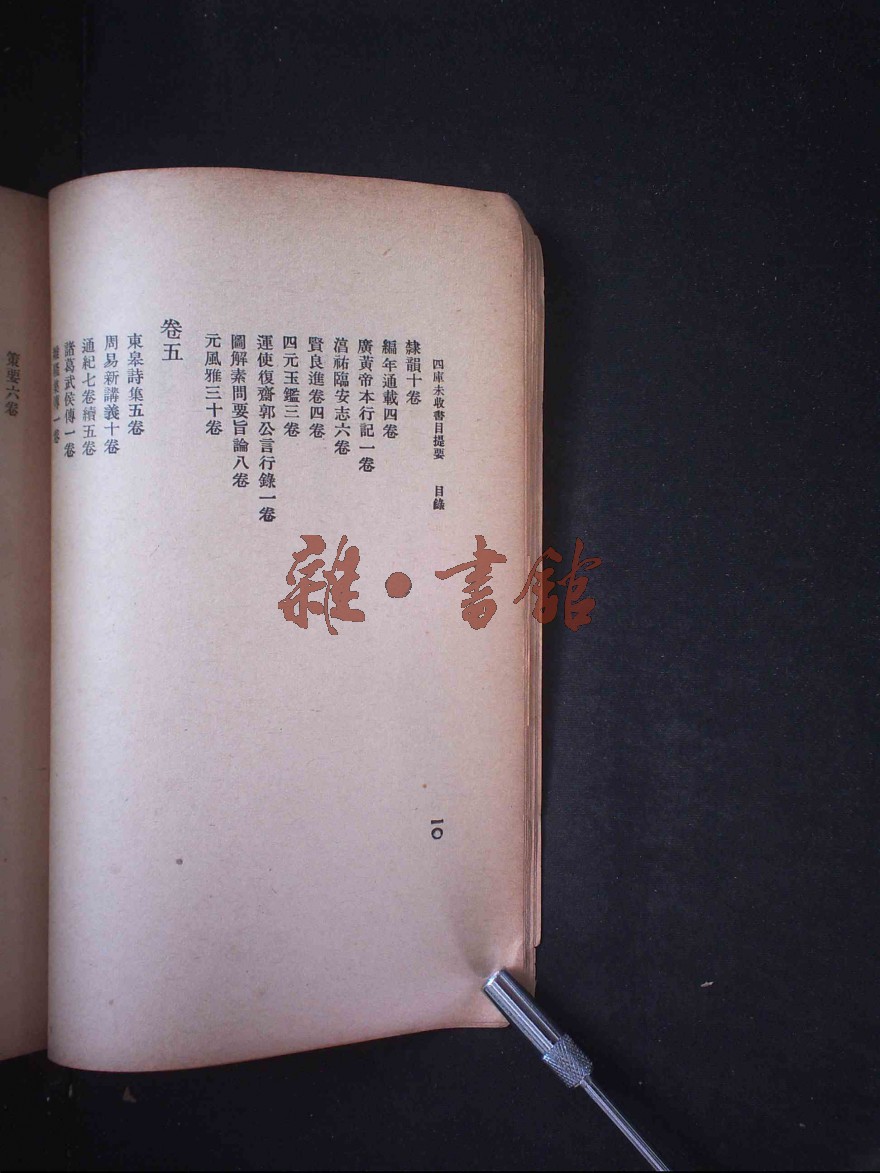 四庫未收書目提要 目錄
一〇
隸韻十卷
編年通載四卷
廣黃帝本行記一卷
萡祐臨安志六卷
賢良進卷四卷
四元玉鑑三卷
運使復齋郭公言行錄一卷
圖解素問要旨論八卷
元風雅三十卷
卷五
東皋詩集五卷
周易新講義十卷
通紀七卷續五卷
諸葛武侯傳一卷
傳一卷
策要六卷
雜·書館